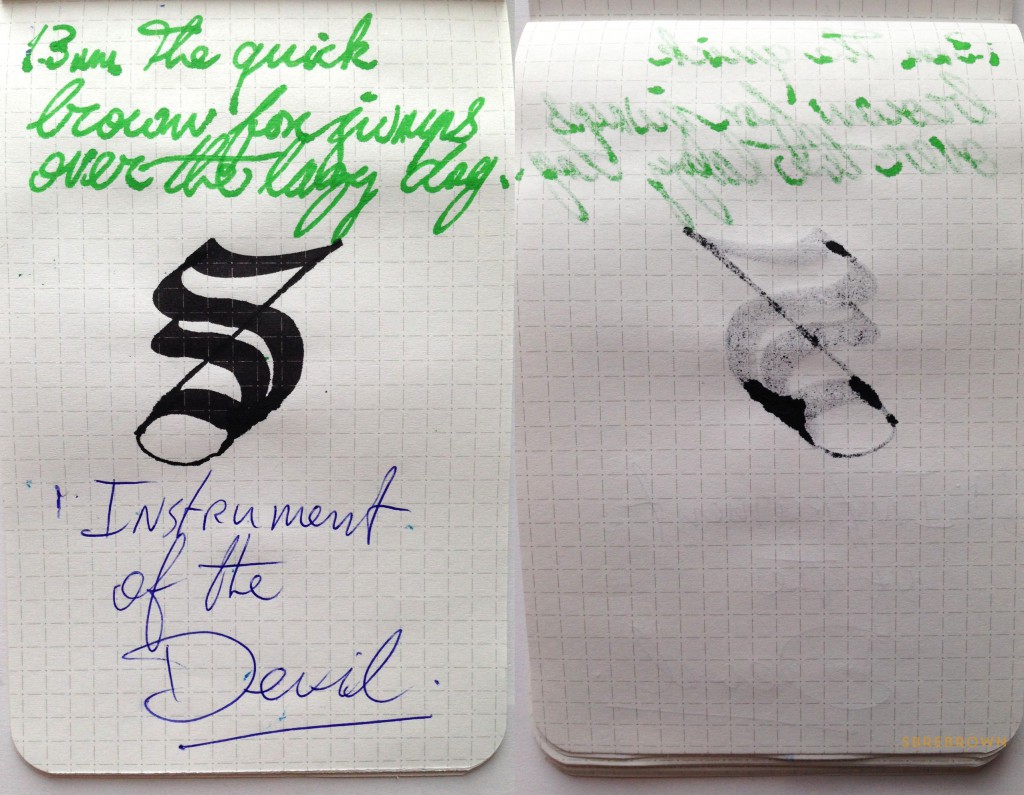 1.3mm The quick
brown fox jumps
over the lazy dog.
S
Instrument
of the
Devil.
SBREBROWN